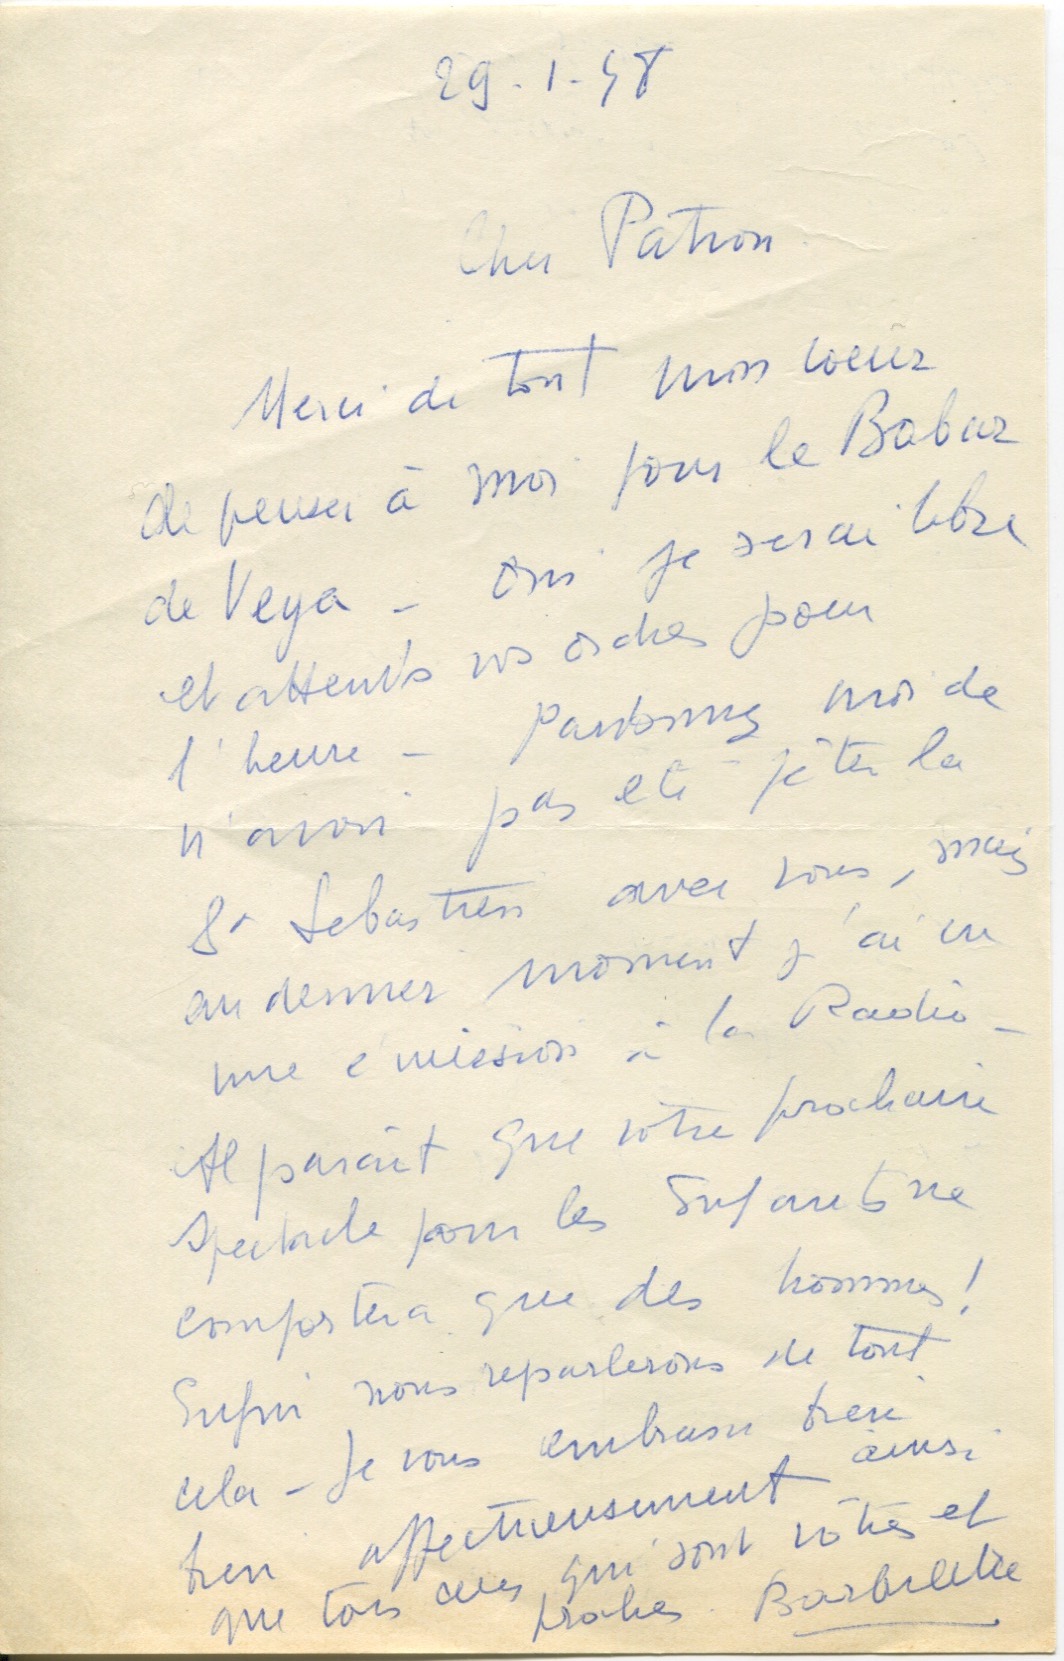 29.1.58
Cher Patron.
Merci de tout mon coeur
de penser à moi pour le Babar
de Veya - Oui je serai libre
et attends vos ordres pour
l'heure - Pardonnez moi de
n'avoir pas été fêter la
St Sebastien avec vous, mais
au dernier moment j'ai eu
une émission à la Radio -
Il parait que votre prochain
spectacle pour les Enfants ne
comportera que des hommes!
Enfin nous reparlerons de tout
cela - Je vous embrasse bien
bien affectueusement ainsi
que tous ceux qui sont vôtres et
proches.